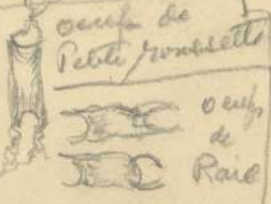 oeufs de
Petite roussette
oeufs
de
Raie